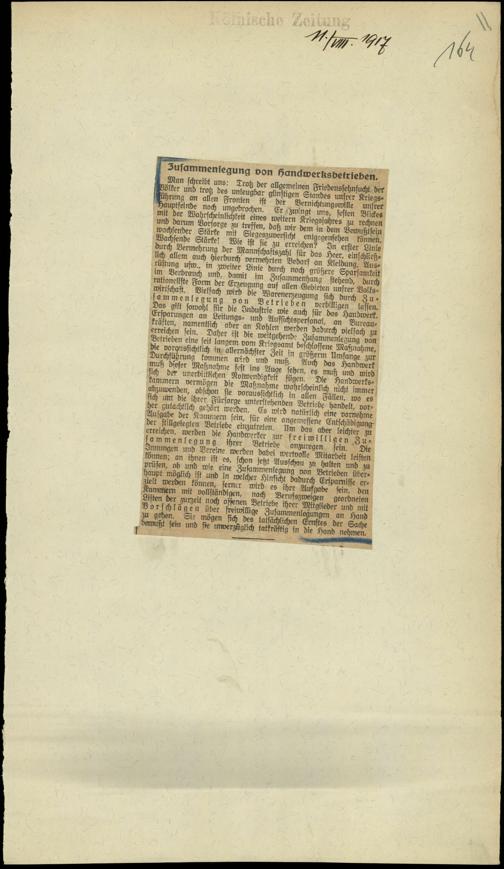 Kölnische Zeitung
11./VIII. 1917
164
Zusammenlegung von Handwerksbetrieben.
Man schreibt uns: Trotz der allgemeinen Friedenssehnsucht der
Völker und trotz des unleugbar günstigen Standes unsrer Kriegs-
führung an allen Fronten ist der Vernichtungswille unsrer
Hauptfeinde noch ungebrochen. Er zwingt uns, festen Blickes
mit der Wahrscheinlichkeit eines weitern Kriegsjahres zu rechnen
und darum Vorsorge zu treffen, daß wir dem in dem Bewußtsein
wachsender Stärke mit Siegeszuversicht entgegensehen können.
Wachsende Stärke! Wie ist sie zu erreichen? In erster Linie
durch Vermehrung der Mannschaftszahl für das Heer, einschließ-
lich allem auch hierdurch vermehrten Bedarf an Kleidung, Aus-
rüstung usw., in zweiter Linie durch noch größere Sparsamkeit
im Verbrauch und, damit im Zusammenhang stehend, durch
rationellste Form der Erzeugung auf allen Gebieten unsrer Volks-
wirtschaft. Vielfach wird die Warenerzeugung sich durch Zu-
sammenlegung von Betrieben verbilligen lassen.
Das gilt sowohl für die Industrie wie auch für das Handwerk.
Ersparungen an Leitungs- und Aufsichtspersonal, an Bureau-
kräften, namentlich aber an Kohlen werden dadurch vielfach zu
erreichen sein. Daher ist die weitgehende Zusammenlegung von
Betrieben eine seit langem vom Kriegsamt beschlossene Maßnahme,
die voraussichtlich in allernächster Zeit in größerm Umfange zur
Durchführung kommen wird und muß. Auch das Handwerk
muß dieser Maßnahme fest ins Auge sehen, es muß und wird
sich der unerbittlichen Notwendigkeit fügen. Die Handwerks-
kammern vermögen die Maßnahme wahrscheinlich nicht immer
abzuwenden, obschon sie voraussichtlich in allen Fällen, wo es
sich um die ihrer Fürsorge unterstehenden Betriebe handelt, vor-
her gutachtlich gehört werden. Es wird natürlich eine vornehme
Aufgabe der Kammern sein, für eine angemessene Entschädigung
der stillgelegten Betriebe einzutreten. Um das aber leichter zu
erreichen, werden die Handwerker zur freiwilligen Zu-
sammenlegung ihrer Betriebe anzuregen sein. Die
Innungen und Vereine werden dabei wertvolle Mitarbeit leisten
können; an ihnen ist es, schon jetzt Ausschau zu halten und zu
prüfen, ob und wie eine Zusammenlegung von Betrieben über-
haupt möglich ist und in welcher Hinsicht dadurch Ersparnisse er-
zielt werden können, ferner wird es ihre Aufgabe sein, den
Kammern mit vollständigen, nach Berufszweigen geordneten
Listen der zurzeit noch offenen Betriebe ihrer Mitglieder und mit
Vorschlägen über freiwillige Zusammenlegungen an Hand
zu gehen. Sie mögen sich des tatsächlichen Ernstes der Sache
bewußt sein und sie unverzüglich tatkräftig in die Hand nehmen.